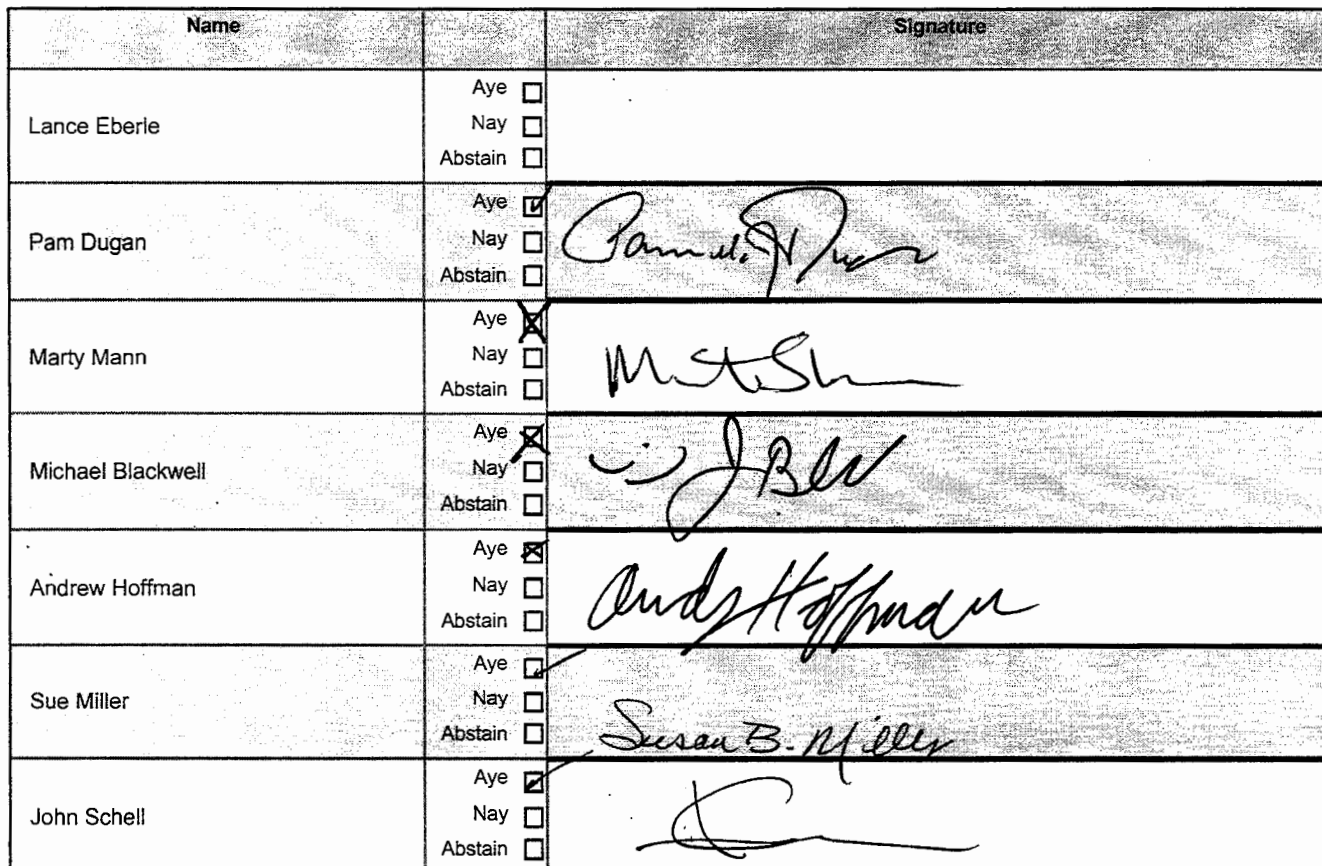 Name Signature
Lance Eberle
Aye ☐
Nay ☐
Abstain ☐
Pam Dugan
Aye ☑
Nay ☐
Abstain ☐
Marty Mann
Aye ☒
Nay ☐
Abstain ☐
Michael Blackwell
Aye ☒
Nay ☐
Abstain ☐
Andrew Hoffman
Aye ☒
Nay ☐
Abstain ☐
Andy Hoffman
Sue Miller
Aye ☑
Nay ☐
Abstain ☐
Susan B. Miller
John Schell
Aye ☑
Nay ☐
Abstain ☐